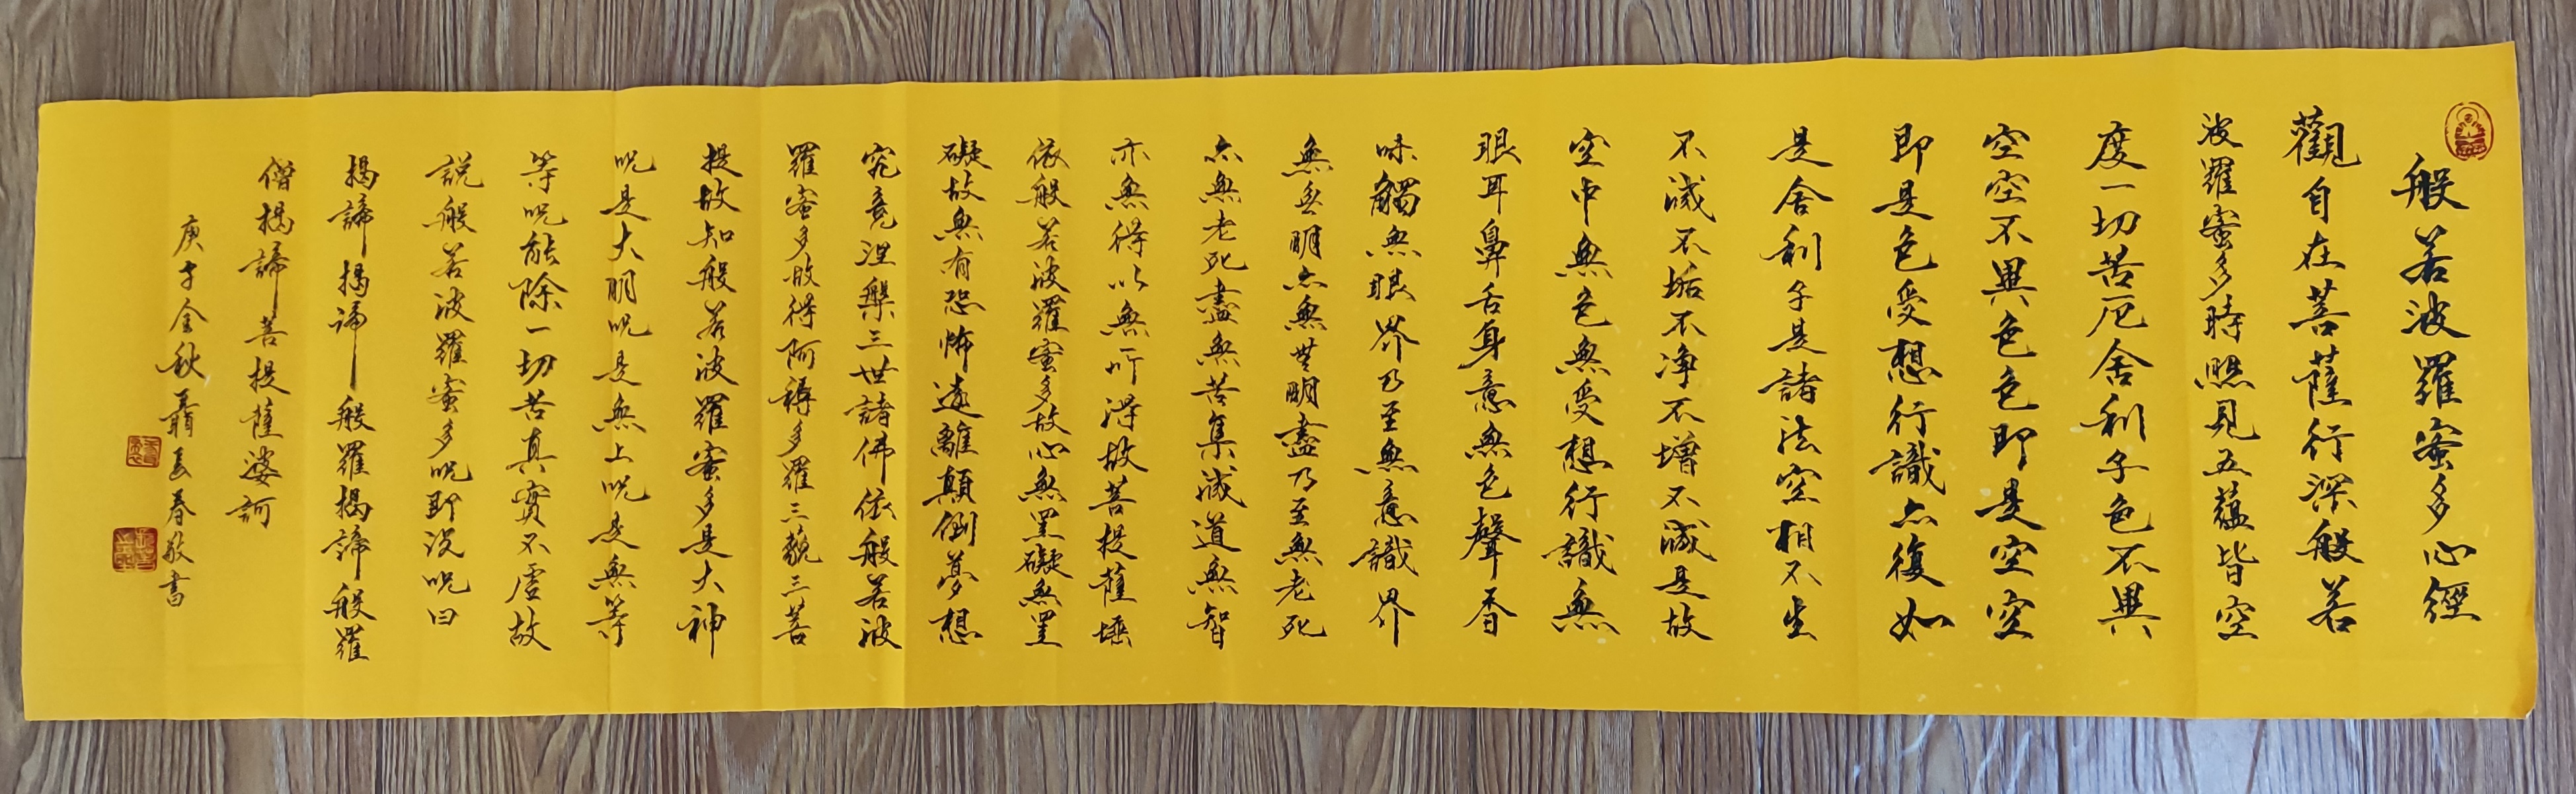 般若波羅蜜多心經
觀自在菩薩行深般若
波羅蜜多時照見五蘊皆空
度一切苦厄舍利子色不異
空空不異色色即是空空
即是色受想行識亦復如
是舍利子是諸法空相不生
不滅不垢不净不增不減是故
空中無色無受想行識無
眼耳鼻舌身意無色聲香
味觸無眼界乃至無意識界
無無明亦無無明盡乃至無老死
亦無老死盡無苦集滅道無智
亦無得以無所得故菩提薩埵
依般若波羅蜜多故心無罣礙無罣
礙故無有恐怖遠離顛倒夢想
究竟涅槃三世諸佛依般若波
羅蜜多故得阿耨多羅三藐三菩
提故知般若波羅蜜多是大神
呪是大明呪是無上呪是無等
等呪能除一切苦真實不虛故
説般若波羅蜜多呪即説呪曰
揭諦揭諦般羅揭諦般羅
僧揭諦菩提薩婆訶
庚子金秋聶長春敬書